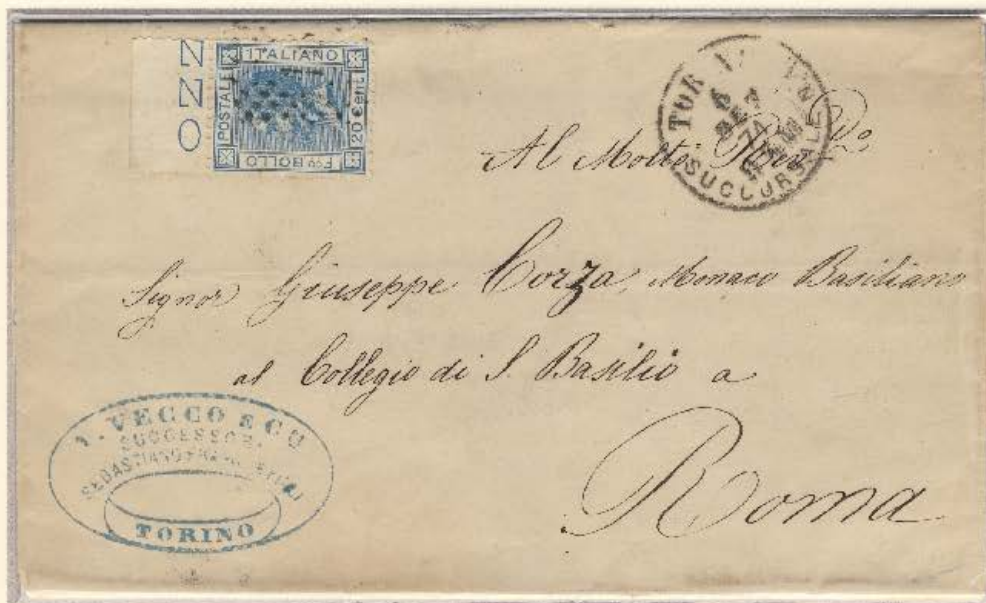 NNO
ITALIANO
POSTALE
20 Cent
F.CO BOLLO
TOR
6
74
SUCCURSALE
Al Molto Rev.do
Signor Giuseppe Cozza, Monaco Basiliano
al Collegio di S. Basilio a
Roma
V. VECCO E CO
SUCCESSORI
SEBASTIANO FRANCO E FIGLI
TORINO